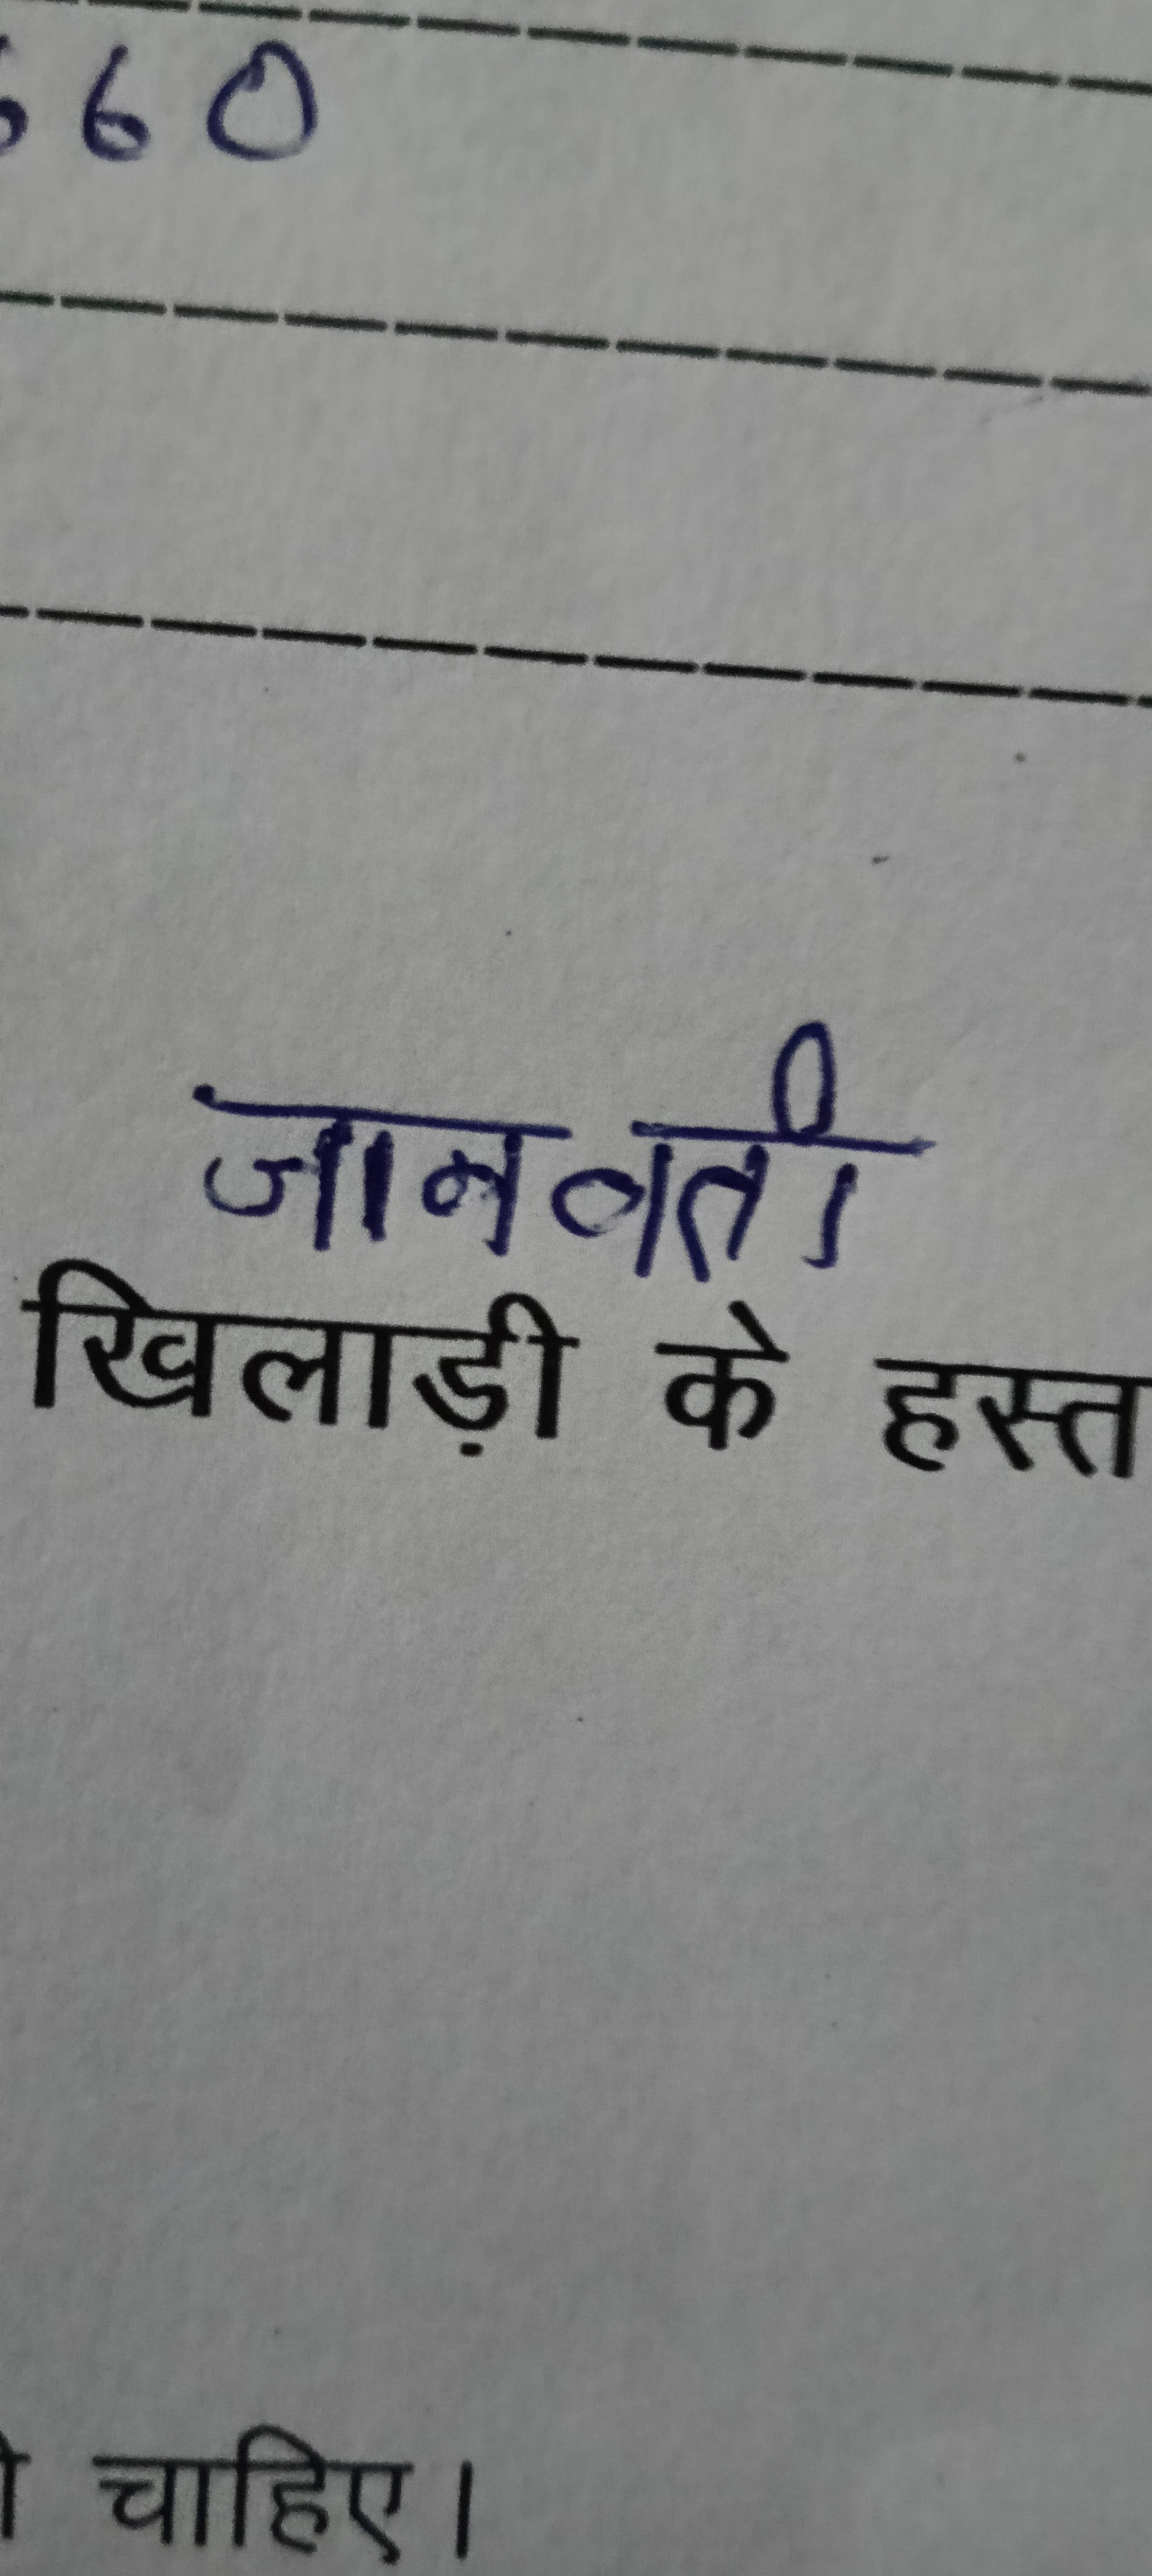 660
जानवती
खिलाड़ी के हस्त
चाहिए।